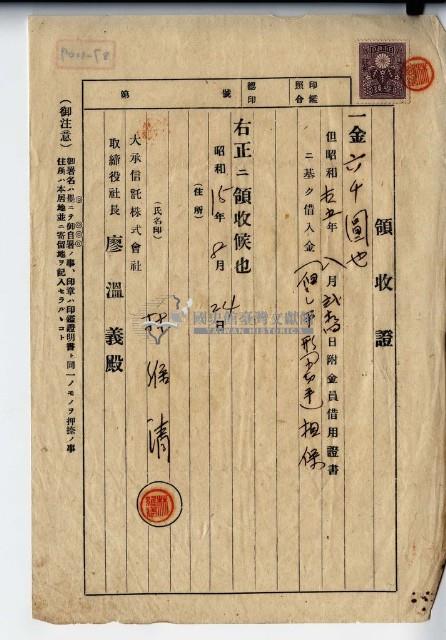 印鑑
照合
總印
第 號
領收證
一金六千圓也
但昭和拾五年八月 日附金員借用證書
ニ基ク借入金
担保
右正ニ領收候也
昭和15年8月24日
(住所)
(氏名印)
林 清
大承信託株式會社
取締役社長 廖溫義殿
(御注意)
御署名ハ必ニテ御自署ノ事、印章ハ印鑑證明書ト同一ノモノヲ押捺ノ事
住所ハ本居地並ニ寄留地ヲ記入セラルヽコト
國史館臺灣文獻館
TAIWAN HISTORICA